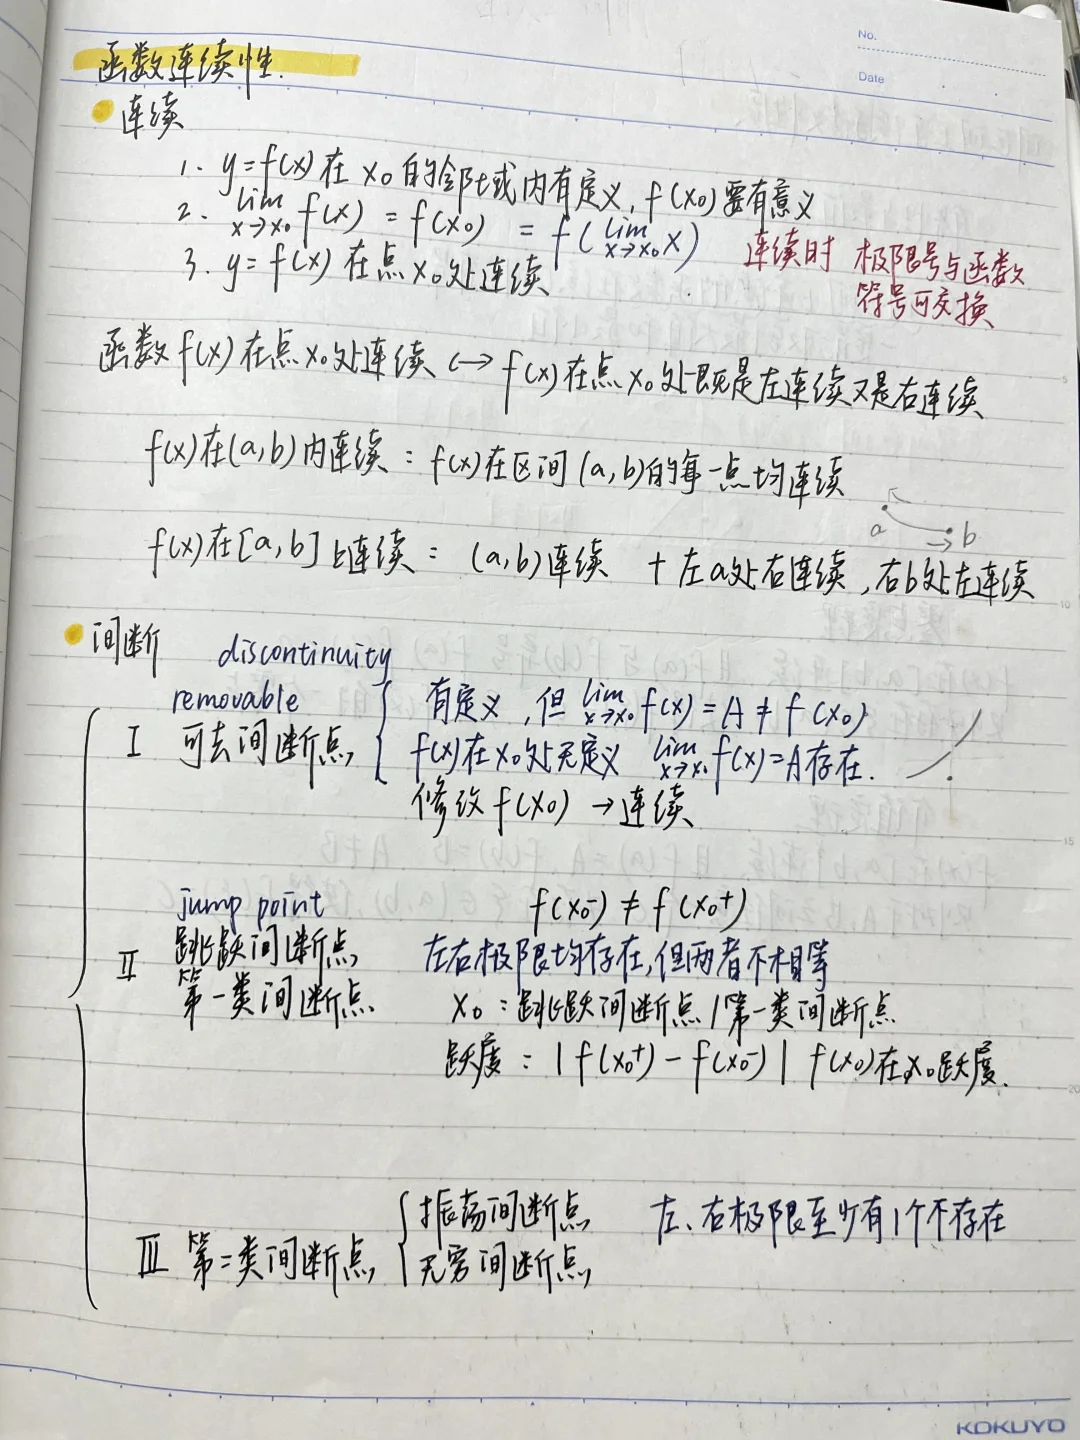 No.
Date
函数连续性.
连续
1. y=f(x)在 x₀的邻域内有定义, f(x₀)要有意义
2. lim x→x₀ f(x) = f(x₀) = f(lim x→x₀ x) 连续时 极限号与函数
符号可交换
3. y=f(x)在点x₀处连续
函数f(x)在点x₀处连续 ↔ f(x)在点x₀处既是左连续又是右连续
f(x)在(a,b)内连续: f(x)在区间(a,b)的每一点均连续
a b
f(x)在[a,b]上连续: (a,b)连续 + 左a处右连续,右b处左连续
间断 discontinuity
removable
I 可去间断点
有定义,但 lim x→x₀ f(x)=A≠f(x₀)
f(x)在x₀处无定义 lim x→x₀ f(x)=A存在.
修改f(x₀) → 连续
jump point f(x₀⁻) ≠ f(x₀⁺)
II 跳跃间断点 左右极限均存在,但两者不相等
第一类间断点 x₀:跳跃间断点/第一类间断点
跃度: |f(x₀⁺)-f(x₀⁻)| f(x₀)在x₀跃度.
振荡间断点 左、右极限至少有1个不存在
III 第二类间断点 无穷间断点
KOKUYO